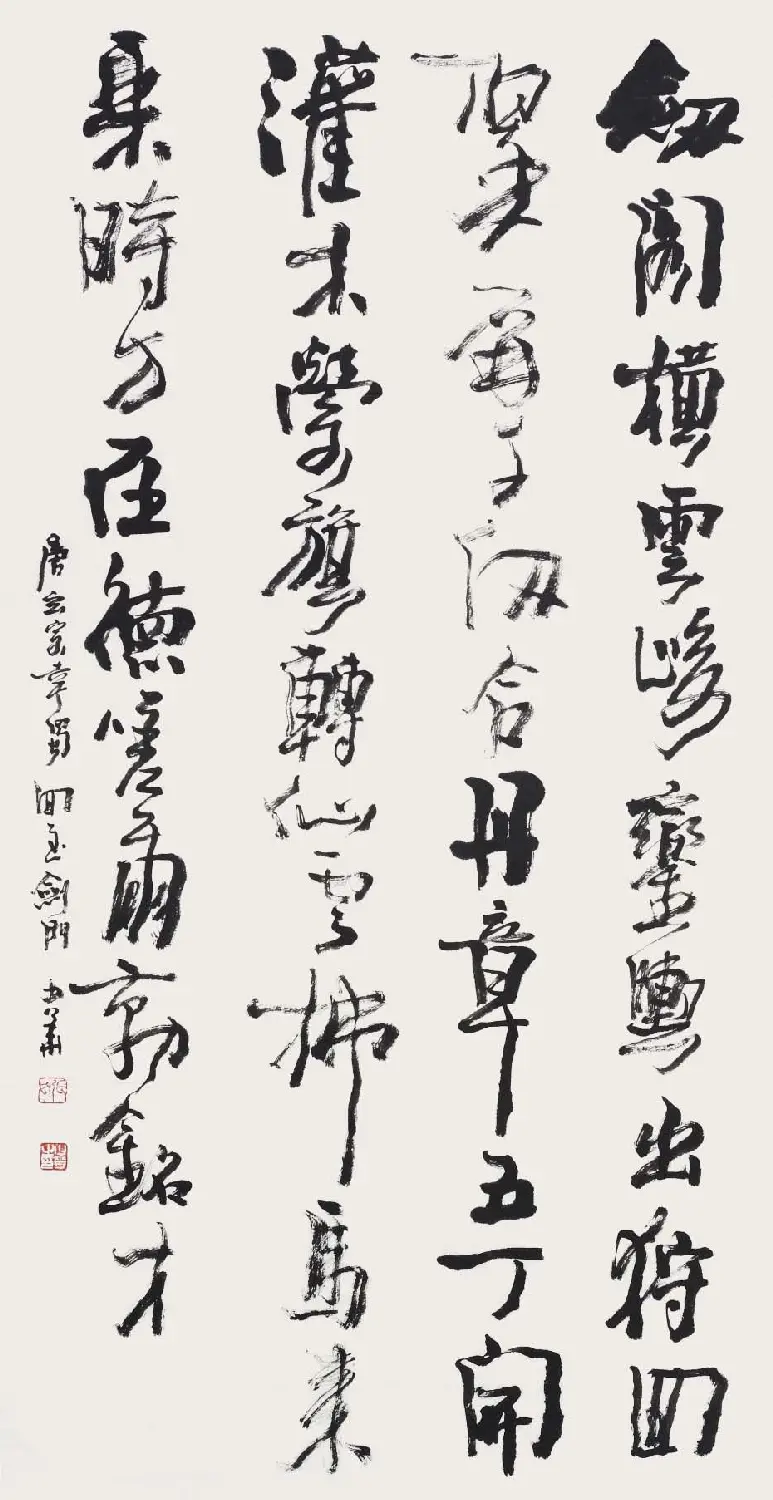 劒閣橫雲峻鑾輿出狩回
翠屏千仞合丹章五丁開
灌木縈旗轉仙雲拂馬來
乘時方在德嗟爾勒銘才
唐玄宗幸蜀回至劍門